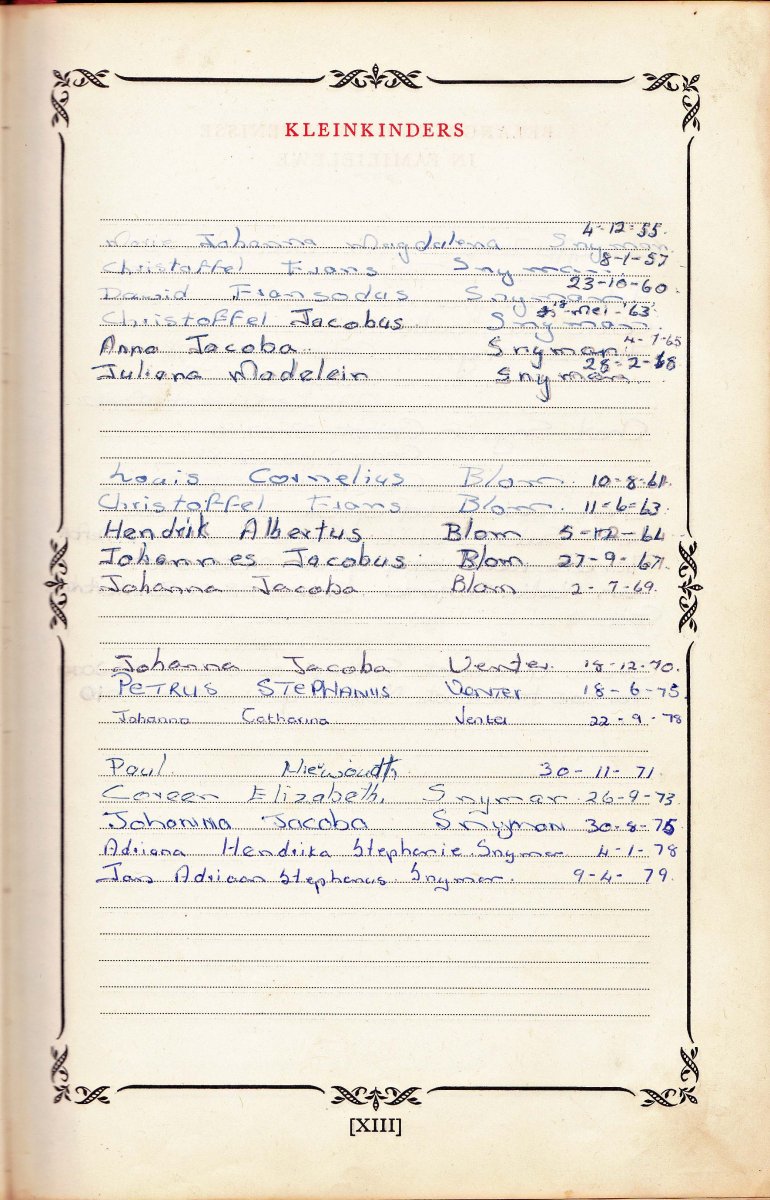 KLEINKINDERS
Maria Johanna Magdalena Snyman 4-12-55.
Christoffel Frans Snyman 8-1-57
Dawid Fransodus Snyman 23-10-60
Christoffel Jacobus Snyman Mei-'63
Anna Jacoba Snyman 4-1-65
Juliana Madelein Snyman 28-2-68
Louis Cornelius Blom 10-8-61
Christoffel Frans Blom. 11-6-63
Hendrik Albertus Blom 5-12-64
Johannes Jacobus Blom 27-9-67
Johanna Jacoba Blom 2-7-69.
Johanna Jacoba Venter. 18-12-70.
PETRUS STEPHANUS VENTER 18-6-75
Johanna Catharina Venter 22-9-78
Paul Niewoudth 30-11-71.
Coreen Elizabeth, Snyman 26-9-73
Johanna Jacoba Snyman 30-8-75
Adriana Hendrika Stephanie Snyman 4-1-78
Jan Adriaan Stephanus Snyman. 9-4-79.
[XIII]